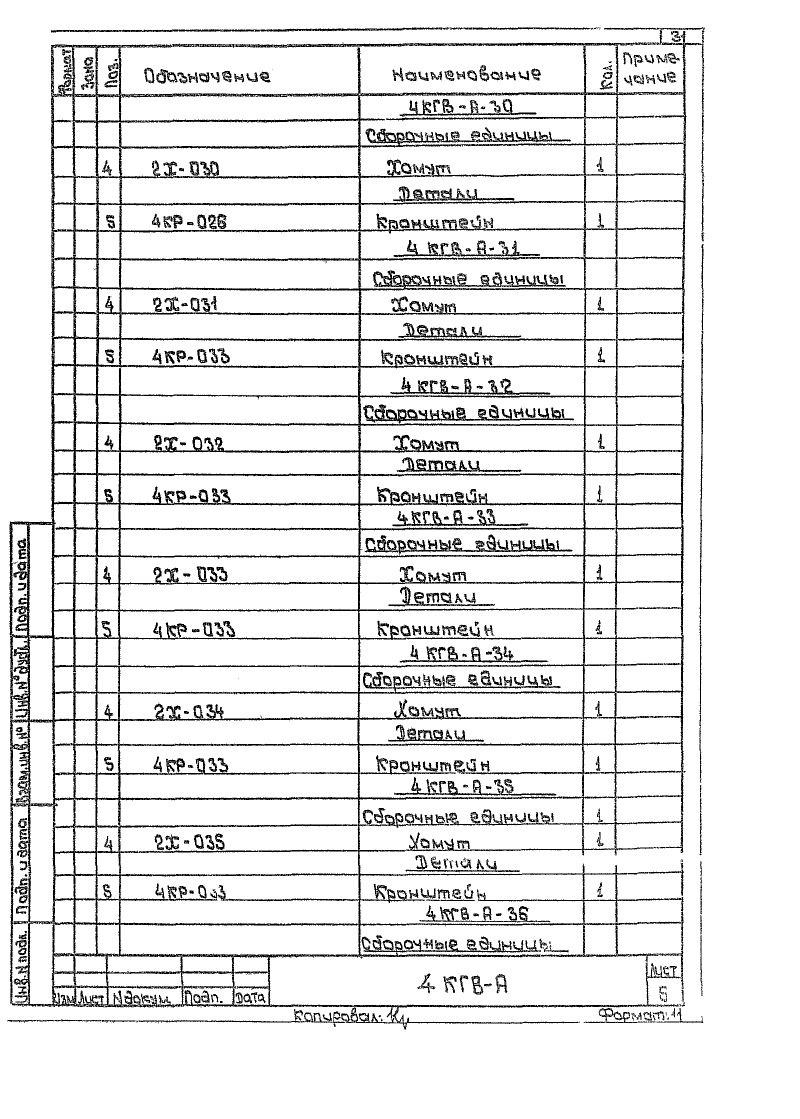 3
Формат Зона Поз. Обозначение Наименование Кол. Приме-
чание
4КГВ-А-30
Сборочные единицы
4 2Х-030 Хомут 1
Детали
5 4КР-026 Кронштейн 1
4 КГВ-А-31
Сборочные единицы
4 2Х-031 Хомут 1
Детали
5 4КР-033 Кронштейн 1
4КГВ-А-32
Сборочные единицы
4 2Х-032 Хомут 1
Детали
5 4КР-033 Кронштейн 1
4КГВ-А-33
Сборочные единицы
4 2Х-033 Хомут 1
Детали
5 4КР-033 Кронштейн 1
4 КГВ-А-34
Сборочные единицы
4 2Х-034 Хомут 1
Детали
5 4КР-033 Кронштейн 1
4КГВ-А-35
Сборочные единицы 1
4 2Х-035 Хомут 1
Детали
5 4КР-033 Кронштейн 1
4КГВ-А-36
Сборочные единицы
Инв.N подл. Подп. и дата Взам.инв.№ Инв.№ дубл. Подп. и дата
Изм Лист N докум. Подп. Дата
4 КГВ-А
Лист
5
Копировал:
Формат:11